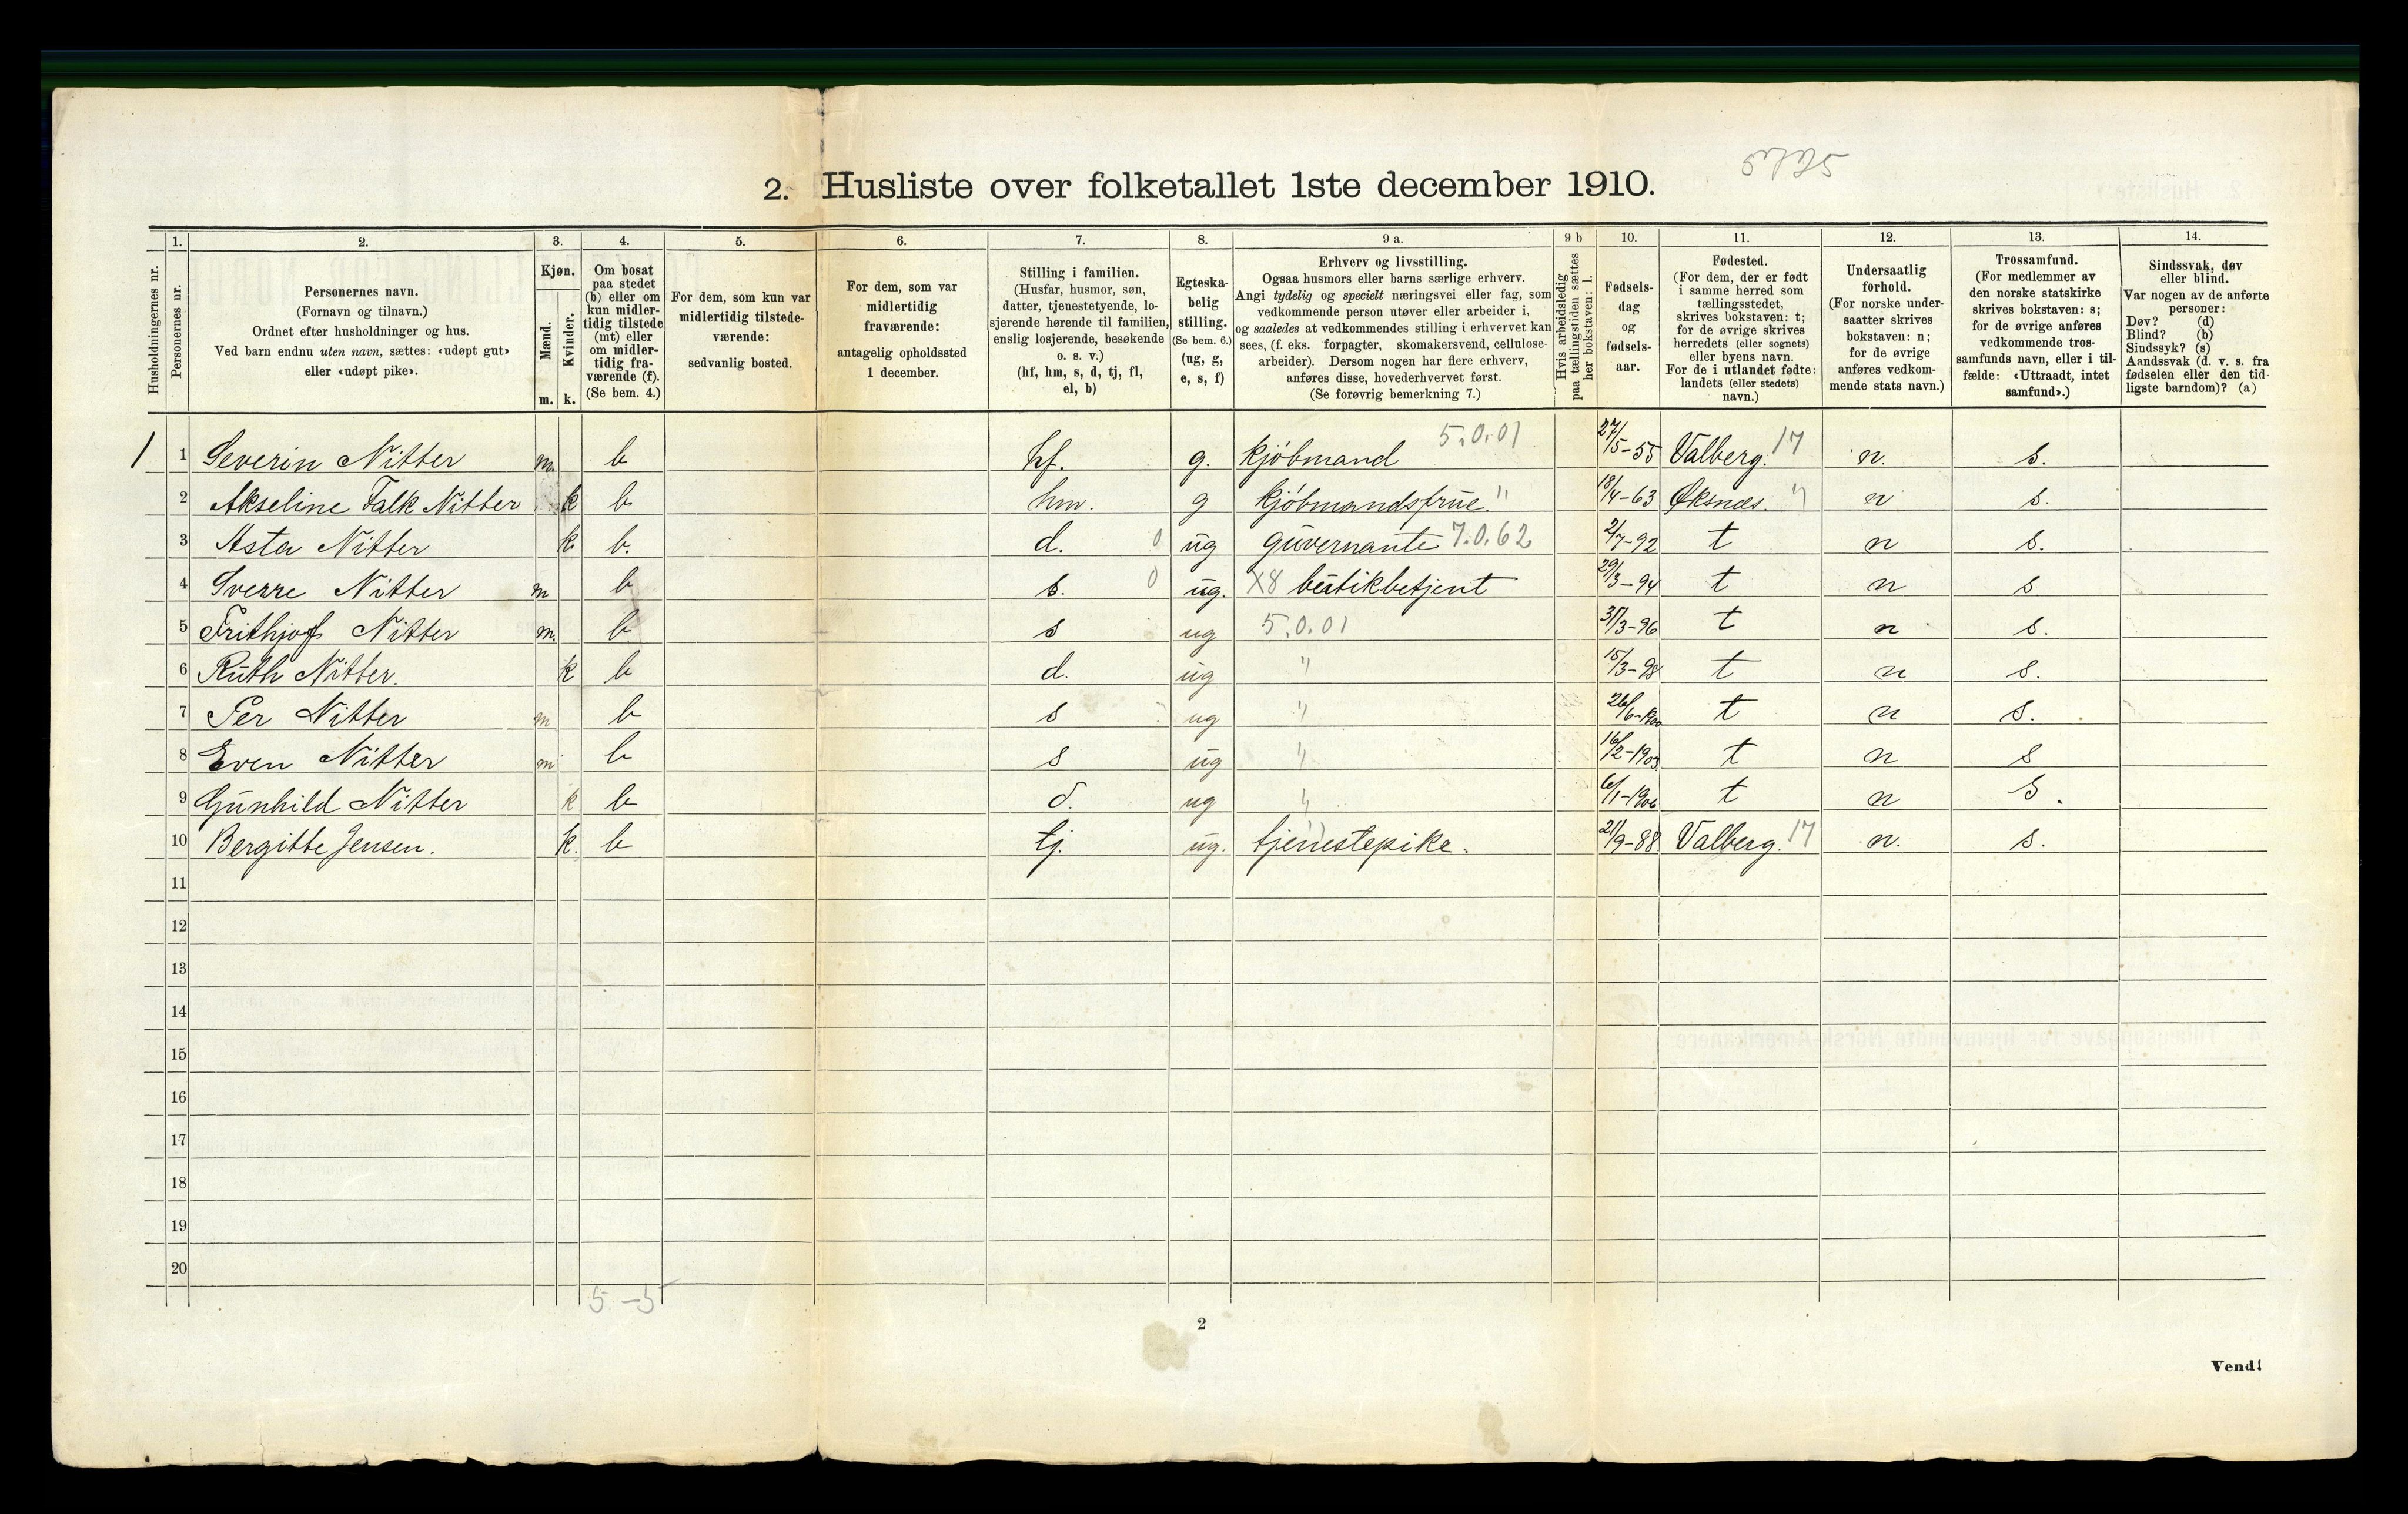 5725
2. Husliste over folketallet 1ste december 1910.
Husholdningernes nr.
1. Personernes nr.
2. Personernes navn. (Fornavn og tilnavn.) Ordnet efter husholdninger og hus. Ved barn endnu uten navn, sættes: «udøpt gut» eller «udøpt pike».
3. Kjøn. Mænd. m. Kvinder. k.
4. Om bosat paa stedet (b) eller om kun midler-tidig tilstede (mt) eller om midler-tidig fra-værende (f). (Se bem. 4.)
5. For dem, som kun var midlertidig tilstede-værende: sedvanlig bosted.
6. For dem, som var midlertidig fraværende: antagelig opholdssted 1 december.
7. Stilling i familien. (Husfar, husmor, søn, datter, tjenestetyende, lo-sjerende hørende til familien, enslig losjerende, besøkende o. s. v.) (hf, hm, s, d, tj, fl, el, b)
8. Egteska-belig stilling. (Se bem. 6.) (ug, g, e, s, f)
9 a. Erhverv og livsstilling. Ogsaa husmors eller barns særlige erhverv. Angi tydelig og specielt næringsvei eller fag, som vedkommende person utøver eller arbeider i, og saaledes at vedkommendes stilling i erhvervet kan sees, (f. eks. forpagter, skomakersvend, cellulose-arbeider). Dersom nogen har flere erhverv, anføres disse, hovederhvervet først. (Se forøvrig bemerkning 7.)
9 b Hvis arbeidsledig paa tællingstiden sættes her bokstaven: l.
10. Fødsels-dag og fødsels-aar.
11. Fødested. (For dem, der er født i samme herred som tællingsstedet, skrives bokstaven: t; for de øvrige skrives herredets (eller sognets) eller byens navn. For de i utlandet fødte: landets (eller stedets) navn.)
12. Undersaatlig forhold. (For norske under-saatter skrives bokstaven: n; for de øvrige anføres vedkom-mende stats navn.)
13. Trossamfund. (For medlemmer av den norske statskirke skrives bokstaven: s; for de øvrige anføres vedkommende tros-samfunds navn, eller i til-fælde: «Uttraadt, intet samfund».)
14. Sindssvak, døv eller blind. Var nogen av de anførte personer: Døv? (d) Blind? (b) Sindssyk? (s) Aandssvak (d. v. s. fra fødselen eller den tid-ligste barndom)? (a)
1 1 Severin Nitter m. b hf. g. kjøbmand 5.0.01 27/5-55 Valberg. 17 n. s.
2 Akseline Falk Nitter k b hm. g kjøbmandsfrue. " 18/4-63 Øksnæs. " n s.
3 Asta Nitter k. b. d. 0 ug guvernante 7.0.62 2/7-92 t n s.
4 Sverre Nitter m b s. 0 ug. X8 butikbetjent 29/3-94 t n s
5 Frithjof Nitter m. b s ug 5.0.01 31/3-96 t n s.
6 Ruth Nitter. k b d. ug " 15/3-98 t n s.
7 Per Nitter m b s ug " 26/6-1900 t n s.
8 Even Nitter m b s ug " 16/2-1903 t n s
9 Gunhild Nitter k b d. ug " 6/1-1906 t n S.
10 Bergitte Jensen. k. b tj. ug. tjenestepike. 21/9-88 Valberg. 17 n. s.
11
12
13
14
15
16
17
18
19
20
5 - 5
2
Vend!